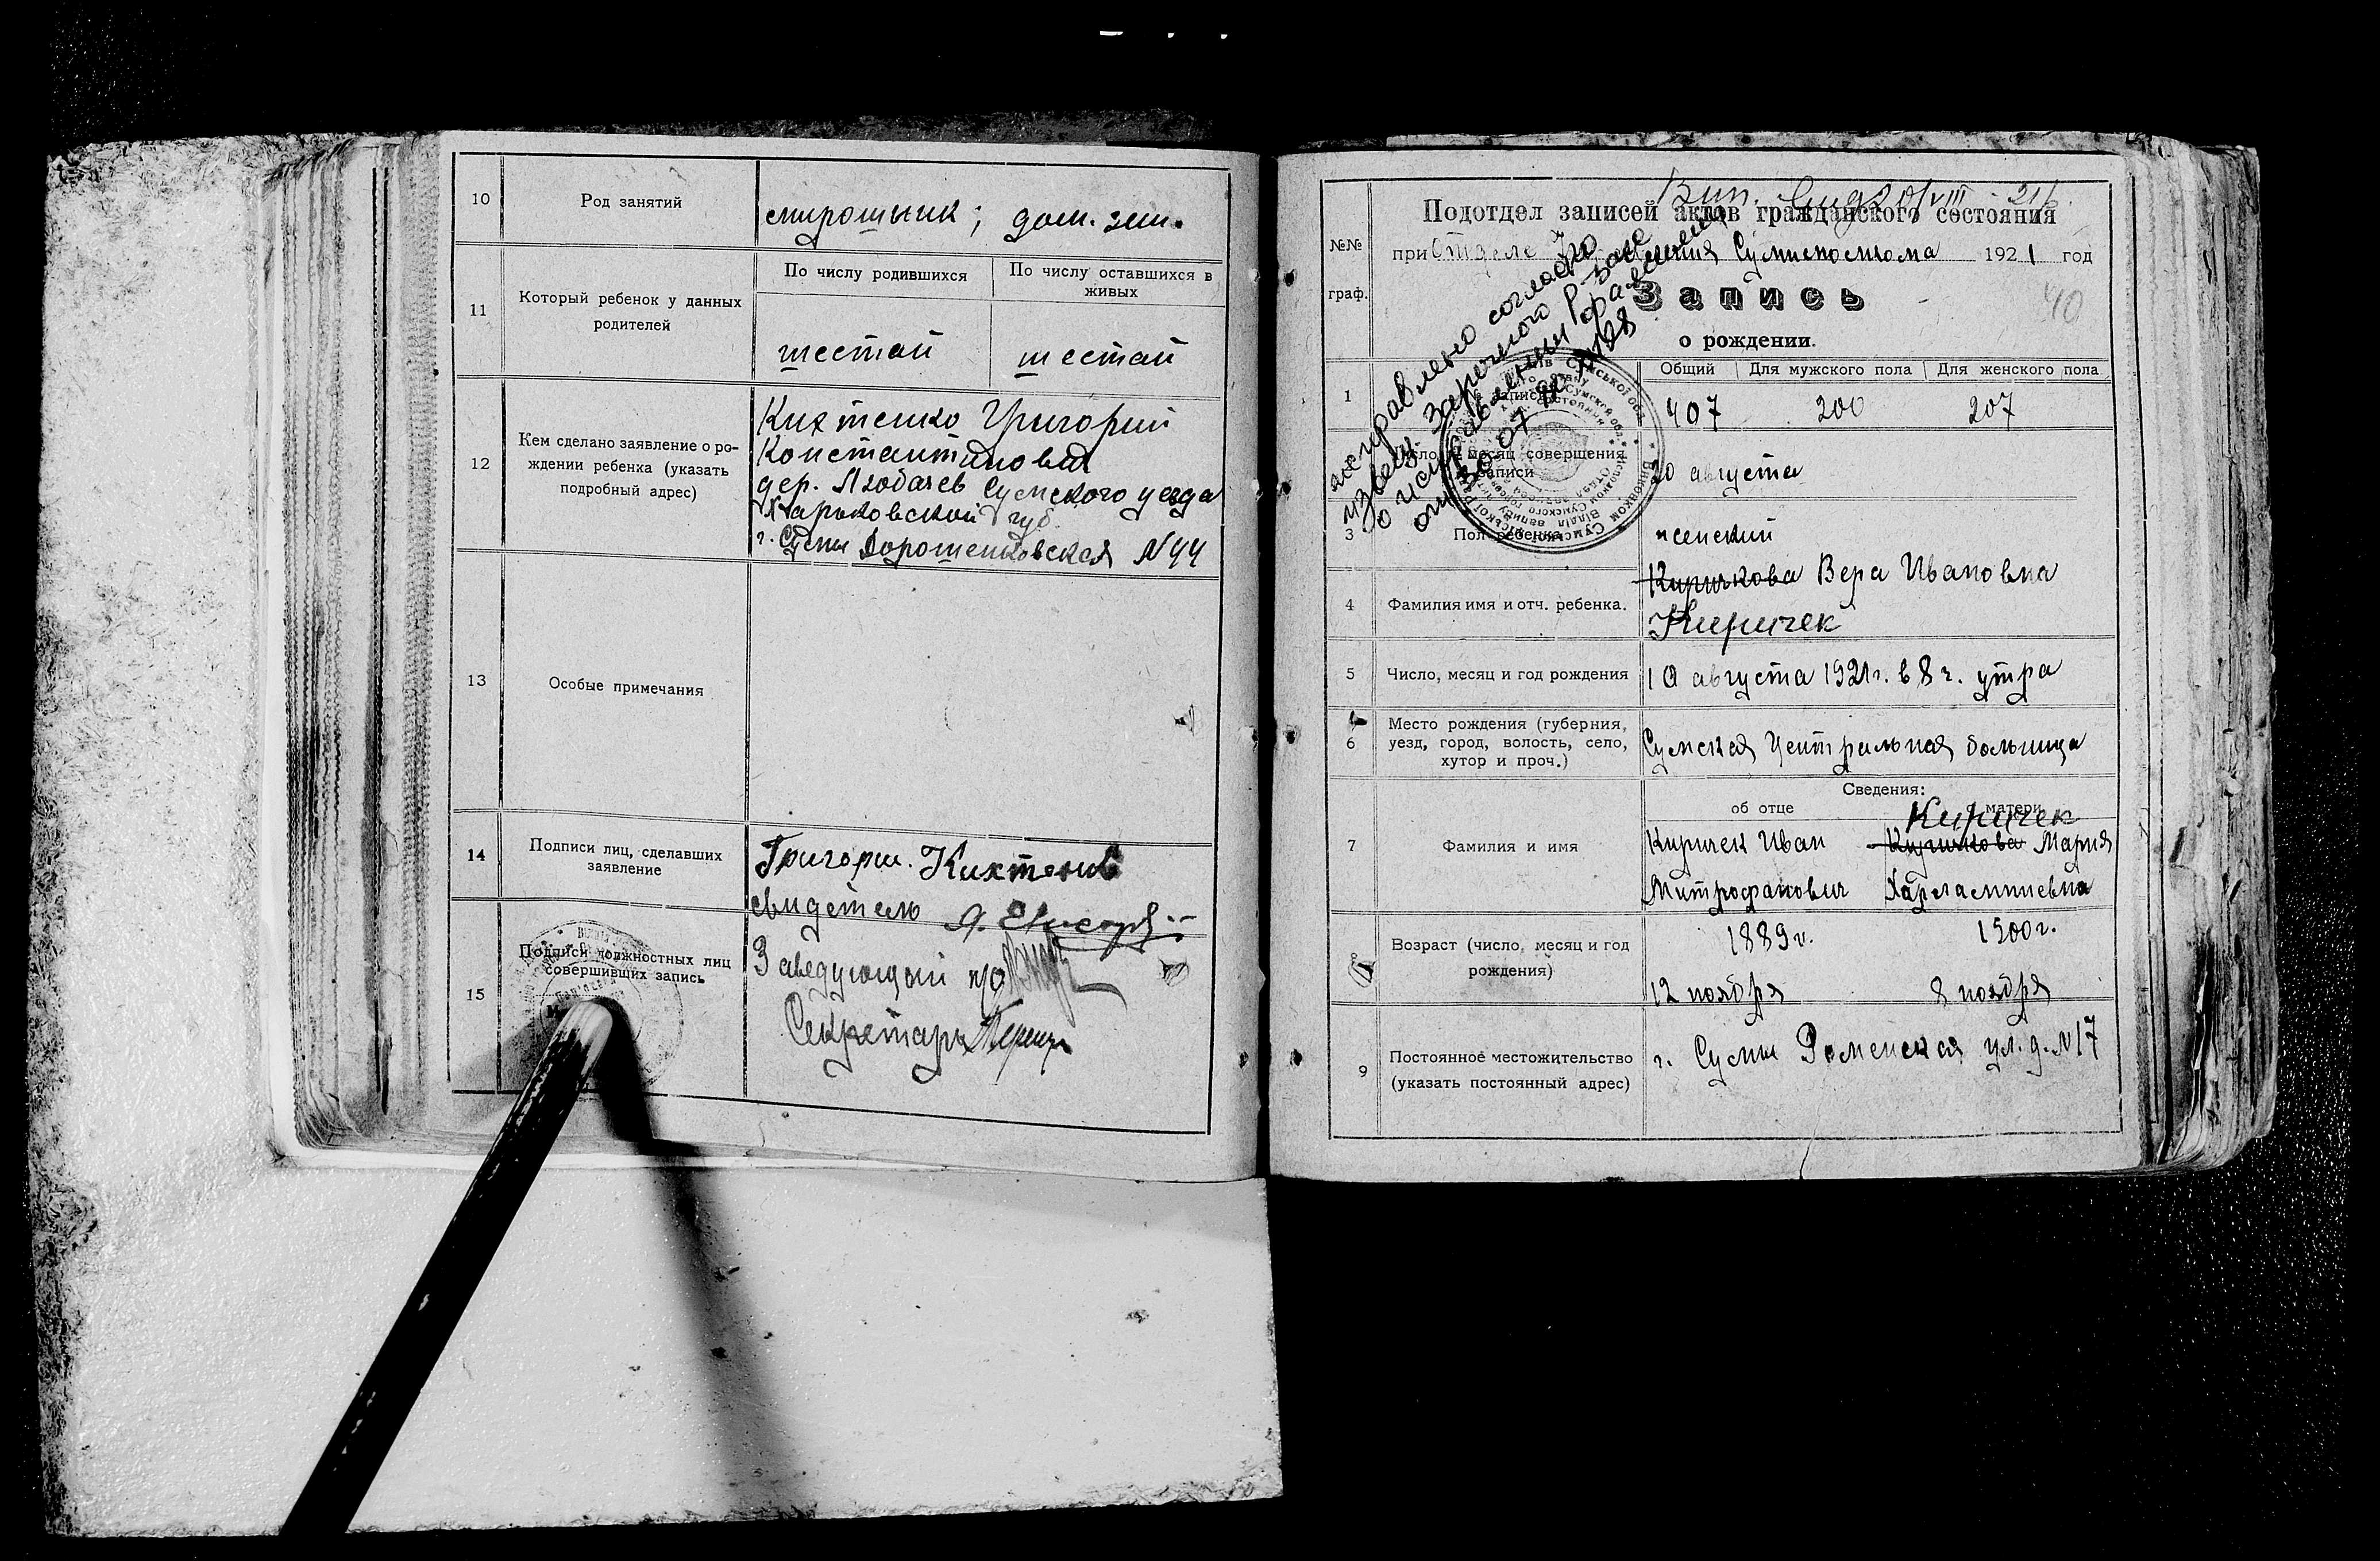 10
Род занятий
мирошник; дом. зан.
11
Который ребенок у данных
родителей
По числу родившихся
По числу оставшихся в
живых
шестой
шестой
12
Кем сделано заявление о ро-
ждении ребенка (указать
подробный адрес)
Кихтенко Григорий
Константинович
дер. Любачев Сумского уезда
Харьковской губ.
г. Сумы Дорошенковская №44
13
Особые примечания
14
Подписи лиц, сделавших
заявление
Григорий Кихтенко
свидетель
15
Подписи должностных лиц
совершивших запись
Заведующий п/о
Секретарь
Вип.
Подотдел записей актов гражданского состояния
№№
граф.
при Отделе Сумисполкома 1921 год
Запись
40
о рождении.
исправлено согласно
извещ. Заречного
о исправлении
1
Общий
Для мужского пола
Для женского пола
407
200
207
месяц совершения
записи
20 августа
3
Пол ребенка
женский
4
Фамилия имя и отч. ребенка.
Киричкова Вера Ивановна
Киричек
5
Число, месяц и год рождения
10 августа 1921г. в 8 ч. утра
6
Место рождения (губерния,
уезд, город, волость, село,
хутор и проч.)
Сумская Центральная больница
7
Фамилия и имя
Сведения:
об отце
матери
Киричек
Киричек Иван
Киричкова Мария
Митрофанович
Харлампиевна
Возраст (число, месяц и год
рождения)
1889г.
1900г.
12 ноября
8 ноября
9
Постоянное местожительство
(указать постоянный адрес)
г. Сумы Роменская ул. д. №17